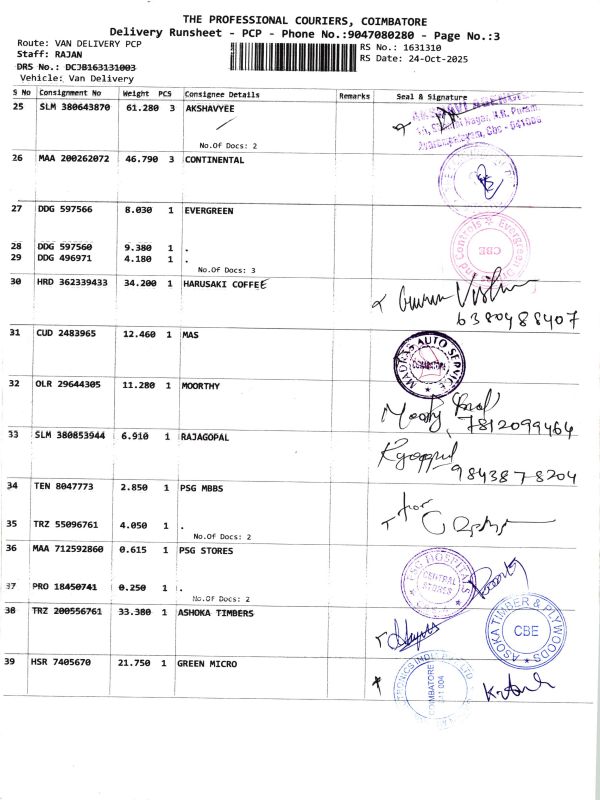 THE PROFESSIONAL COURIERS, COIMBATORE
Delivery Runsheet - PCP - Phone No.:9047080280 - Page No.:3
Route: VAN DELIVERY PCP
Staff: RAJAN
DRS No.: DCJB163131003
Vehicle: Van Delivery
RS No.: 1631310
RS Date: 24-Oct-2025
S No Consignment No Weight PCS Consignee Details Remarks Seal & Signature
25 SLM 380643870 61.280 3 AKSHAVYEE
No.Of Docs: 2
26 MAA 200262072 46.790 3 CONTINENTAL
27 DDG 597566 8.030 1 EVERGREEN
28 DDG 597560 9.380 1 .
29 DDG 496971 4.180 1 .
No.Of Docs: 3
CBE
30 HRD 362339433 34.200 1 HARUSAKI COFFEE
6380488407
31 CUD 2483965 12.460 1 MAS
MADRAS AUTO SERVICE
COIMBATORE
32 OLR 29644305 11.280 1 MOORTHY
7812099464
33 SLM 380853944 6.910 1 RAJAGOPAL
9843878204
34 TEN 8047773 2.850 1 PSG MBBS
for
35 TRZ 55096761 4.050 1 .
No.Of Docs: 2
36 MAA 712592860 0.615 1 PSG STORES
PSG HOSPITALS
CENTRAL STORES
37 PRO 18450741 0.250 1 .
No.Of Docs: 2
38 TRZ 200556761 33.380 1 ASHOKA TIMBERS
ASOKA TIMBER & PLYWOODS
CBE
39 HSR 7405670 21.750 1 GREEN MICRO
COIMBATORE
641 004